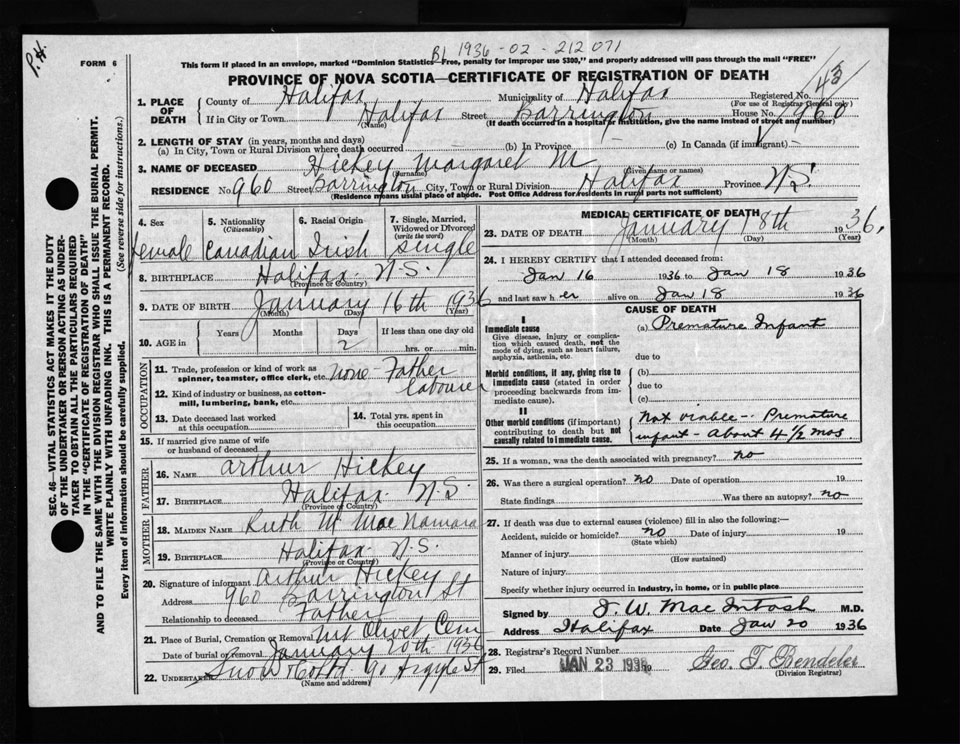 P.H.
B1 1936-02-212071
FORM 6
This form if placed in an envelope, marked "Dominion Statistics—Free, penalty for improper use $300," and properly addressed will pass through the mail "FREE"
PROVINCE OF NOVA SCOTIA—CERTIFICATE OF REGISTRATION OF DEATH
43
SEC. 46—VITAL STATISTICS ACT MAKES IT THE DUTY
OF THE UNDERTAKER OR PERSON ACTING AS UNDER-
TAKER TO OBTAIN ALL THE PARTICULARS REQUIRED
IN THE "CERTIFICATE OF REGISTRATION OF DEATH"
AND TO FILE THE SAME WITH THE DIVISION REGISTRAR WHO SHALL ISSUE THE BURIAL PERMIT.
WRITE PLAINLY WITH UNFADING INK. THIS IS A PERMANENT RECORD.
Every item of information should be carefully supplied. (See reverse side for instructions.)
1. PLACE OF DEATH
County of Halifax Municipality of Halifax Registered No.
(For use of Registrar General only)
If in City or Town Halifax Street Barrington House No. 960
(Name) (If death occurred in a hospital or institution, give the name instead of street and number)
2. LENGTH OF STAY (in years, months and days)
(a) In City, Town or Rural Division where death occurred (b) In Province (c) In Canada (if immigrant)
3. NAME OF DECEASED Hickey Margaret M
(Surname) (Given name or names)
RESIDENCE No. 960 Street Barrington City, Town or Rural Division Halifax Province N.S.
(Residence means usual place of abode. Post Office Address for residents in rural parts not sufficient)
4. Sex 5. Nationality (Citizenship) 6. Racial Origin 7. Single, Married, Widowed or Divorced (write the word)
female Canadian Irish single
8. BIRTHPLACE Halifax N.S.
(Province or Country)
9. DATE OF BIRTH January 16th 1936
(Month) (Day) (Year)
10. AGE in Years Months Days If less than one day old
2 hrs. or min.
OCCUPATION
11. Trade, profession or kind of work as
spinner, teamster, office clerk, etc. none - Father
labourer
12. Kind of industry or business, as cotton-
mill, lumbering, bank, etc.
13. Date deceased last worked
at this occupation
14. Total yrs. spent in
this occupation
15. If married give name of wife
or husband of deceased
FATHER
16. NAME Arthur Hickey
17. BIRTHPLACE Halifax N.S.
(Province or Country)
MOTHER
18. MAIDEN NAME Ruth M MacNamara
19. BIRTHPLACE Halifax N.S.
(Province or Country)
20. Signature of informant Arthur Hickey
Address 960 Barrington St
Relationship to deceased Father
21. Place of Burial, Cremation or Removal Mt Olivet Cem
Date of burial or removal January 20th 1936
22. Undertaker Snow & Co Ltd. 90 Argyle St
(Name and address)
MEDICAL CERTIFICATE OF DEATH
23. DATE OF DEATH January 18th 1936.
(Month) (Day) (Year)
24. I HEREBY CERTIFY that I attended deceased from:
Jan 16 1936 to Jan 18 1936
and last saw h er alive on Jan 18 1936
CAUSE OF DEATH
I
Immediate cause
Give disease, injury or complica-
tion which caused death, not the
mode of dying, such as heart failure,
asphyxia, asthenia, etc.
(a) Premature Infant
due to
Morbid conditions, if any, giving rise to
immediate cause (stated in order
proceeding backwards from im-
mediate cause).
(b)
due to
(c)
II
Other morbid conditions (if important)
contributing to death but not
causally related to immediate cause.
Not viable -- Premature
infant - About 4 1/2 mos.
25. If a woman, was the death associated with pregnancy? no
26. Was there a surgical operation? no Date of operation 19
State findings Was there an autopsy? no
27. If death was due to external causes (violence) fill in also the following:—
Accident, suicide or homicide? no Date of injury 19
(State which)
Manner of injury
(How sustained)
Nature of injury
Specify whether injury occurred in industry, in home, or in public place
Signed by J. W. MacIntosh M.D.
Address Halifax Date Jan 20 1936
28. Registrar's Record Number
29. Filed JAN 23 1936 19 Geo. T. Bendeler
(Division Registrar)